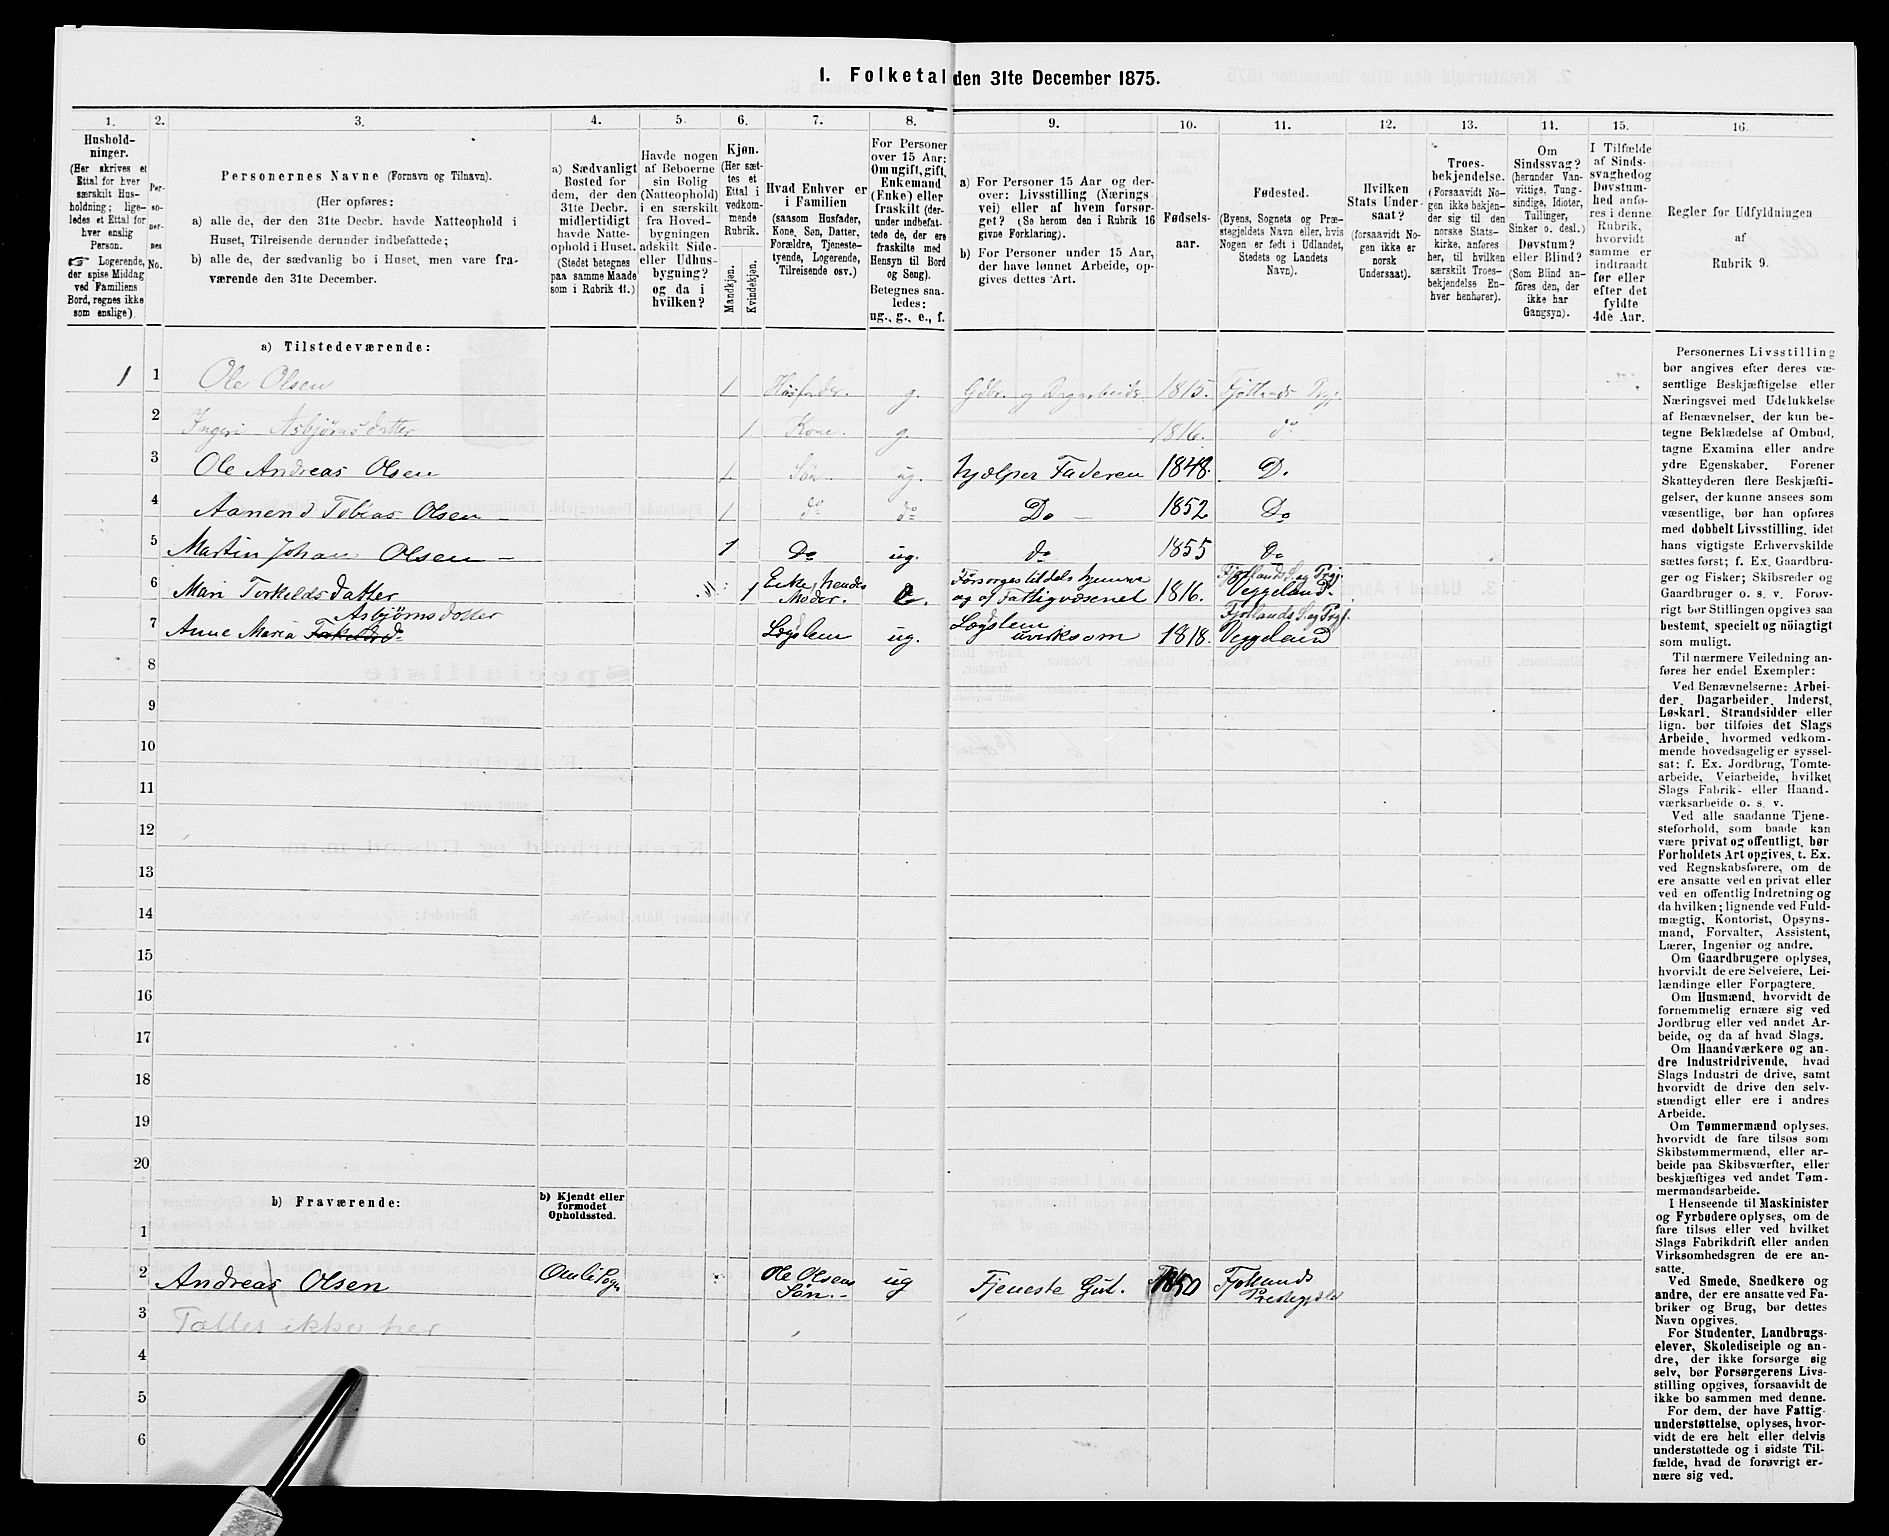 1. Folketal den 31te December 1875.
1. 2. 3. 4. 5. 6. 7. 8. 9. 10. 11. 12. 13. 14. 15. 16.
Hushold-
ninger.
(Her skrives et
Ettal for hver
særskilt Hus-
holdning; lige-
ledes et Ettal for
hver enslig
Person.
☞ Logerende,
der spise Middag
ved Familiens
Bord, regnes ikke
som enslige).
Per-
so-
ner-
nes
No.
Personernes Navne (Fornavn og Tilnavn).
(Her opføres:
a) alle de, der den 31te Decbr. havde Natteophold i
Huset, Tilreisende derunder indbefattede;
b) alle de, der sædvanlig bo i Huset, men vare fra-
værende den 31te December.
a) Sædvanligt
Bosted for
dem, der den
31te Decbr.
midlertidigt
havde Natte-
ophold i Huset.
(Stedet betegnes
paa samme Maade
som i Rubrik 11.)
Havde nogen
af Beboerne
sin Bolig
(Natteophold)
i en særskilt
fra Hoved-
bygningen
adskilt Side-
eller Udhus-
bygning?
og da i
hvilken?
Kjøn.
(Her sæt-
tes et
Ettal i
vedkom-
mende
Rubrik.
Mandkjøn.
Kvindekjøn.
Hvad Enhver er
i Familien
(saasom Husfader,
Kone, Søn, Datter,
Forældre, Tjeneste-
tyende, Logerende,
Tilreisende osv.)
For Personer
over 15 Aar:
Om ugift, gift,
Enkemand
(Enke) eller
fraskilt (der-
under indbefat-
tede de, der ere
fraskilte med
Hensyn til Bord
og Seng).
Betegnes saa-
ledes:
ug., g., e., f.
a) For Personer 15 Aar og der-
over: Livsstilling (Nærings-
vei) eller af hvem forsør-
get? (Se herom den i Rubrik 16
givne Forklaring).
b) For Personer under 15 Aar,
der have lønnet Arbeide, op-
gives dettes Art.
Fødsels-
aar.
Fødested.
(Byens, Sognets og Præ-
stegjeldets Navn eller, hvis
Nogen er født i Udlandet,
Stedets og Landets
Navn).
Hvilken
Stats Under-
saat?
(forsaavidt No-
gen ikke er
norsk
Undersaat).
Troes-
bekjendelse.
(Forsaavidt No-
gen ikke bekjen-
der sig til den
norske Stats-
kirke, anføres
her, til hvilken
særskilt Troes-
bekjendelse En-
hver henhører).
Om
Sindssvag?
(herunder Van-
vittige, Tung-
sindige, Idioter,
Tullinger,
Sinker o. desl.)
Døvstum?
eller Blind?
(Som Blind an-
føres den, der
ikke har
Gangsyn).
I Tilfælde
af Sinds-
svaghed og
Døvstum-
hed anfø-
res i denne
Rubrik,
hvorvidt
samme er
indtraadt
før eller
efter det
fyldte
4de Aar.
Regler for Udfyldningen
af
Rubrik 9.
a) Tilstedeværende:
1 1 Ole Olsen 1 Husfader. g. Gdbr. og Dagarbeider 1815. Fjotlands Prgj.
2 Ingeri Asbjørnsdatter 1 Kone. g. 1816. do
3 Ole Andreas Olsen 1 Søn ug. hjælper Faderen 1848. D.
4 Aanend Tobias Olsen — 1 do do Do — 1852 Do
5 Martin Johan Olsen — 1 Do ug. do 1855 Do
6 Mari Torkeldsdatter 1 Enke, hendes Moder. e. Forsørges tildels hjemme og af Fattigvæsenet 1816. Fjotlands S. og Prgj. Veggeland.
Asbjørnsdatter
7 Anne Maria Torkelds d. Lægslem ug. Lægslem uvirksom 1818. Fjotlands S. og Prgj. Veggeland
8
9
10
11
12
13
14
15
16
17
18
19
20
b) Fraværende:
b) Kjendt eller
formodet
Opholdssted.
1
2 Andreas Olsen Omli Sogn Ole Olsens Søn.- ug Tjeneste Gut. 1850 Fjotlands Prestegjeld
3 Tælles ikke her
4
5
6
Personernes Livsstilling
bør angives efter deres væ-
sentlige Beskjæftigelse eller
Næringsvei med Udelukkelse
af Benævnelser, der kun be-
tegne Beklædelse af Ombud,
tagne Examina eller andre
ydre Egenskaber. Forener
Skatteyderen flere Beskjæfti-
gelser, der kunne ansees som
væsentlige, bør han opføres
med dobbelt Livsstilling, idet
hans vigtigste Erhvervskilde
sættes først; f. Ex. Gaardbru-
ger og Fisker; Skibsreder og
Gaardbruger o. s. v. Forøv-
rigt bør Stillingen opgives saa
bestemt, specielt og nöiagtigt
som muligt.
Til nærmere Veiledning an-
føres her endel Exempler:
Ved Benævnelserne: Arbei-
der, Dagarbeider, Inderst,
Løskarl, Strandsidder eller
lign. bør tilføies det Slags
Arbeide, hvormed vedkom-
mende hovedsagelig er syssel-
sat; f. Ex. Jordbrug, Tomte-
arbeide, Veiarbeide, hvilket
Slags Fabrik- eller Haand-
værksarbeide o. s. v.
Ved alle saadanne Tjene-
steforhold, som baade kan
være privat og offentligt, bør
Forholdets Art opgives, t. Ex.
ved Regnskabsførere, om de
ere ansatte ved en privat eller
ved en offentlig Indretning og
da hvilken; lignende ved Fuld-
mægtig, Kontorist, Opsyns-
mand, Forvalter, Assistent,
Lærer, Ingeniør og andre.
Om Gaardbrugere oplyses,
hvorvidt de ere Selveiere, Lei-
lændinge eller Forpagtere.
Om Husmænd, hvorvidt de
fornemmelig ernære sig ved
Jordbrug eller ved andet Ar-
beide, og da af hvad Slags.
Om Haandværkere og an-
dre Industridrivende, hvad
Slags Industri de drive, samt
hvorvidt de drive den selv-
stændigt eller ere i andres
Arbeide.
Om Tømmermænd oplyses,
hvorvidt de fare tilsøs som
Skibstømmermænd, eller ar-
beide paa Skibsværfter, eller
beskjæftiges ved andet Tøm-
mermandsarbeide.
I Henseende til Maskinister
og Fyrbødere oplyses, om de
fare tilsøs eller ved hvilket
Slags Fabrikdrift eller anden
Virksomhedsgren de ere an-
satte.
Ved Smede, Snedkere og
andre, der ere ansatte ved Fa-
briker og Brug, bør dettes
Navn opgives.
For Studenter, Landbrugs-
elever, Skoledisciple og an-
dre, der ikke forsørge sig
selv, bør Forsørgerens Livs-
stilling opgives, forsaavidt de
ikke bo sammen med denne.
For dem, der have Fattig-
understøttelse, oplyses, hvor-
vidt de ere helt eller delvis
understøttede og i sidste Til-
fælde, hvad de forøvrigt er-
nære sig ved.